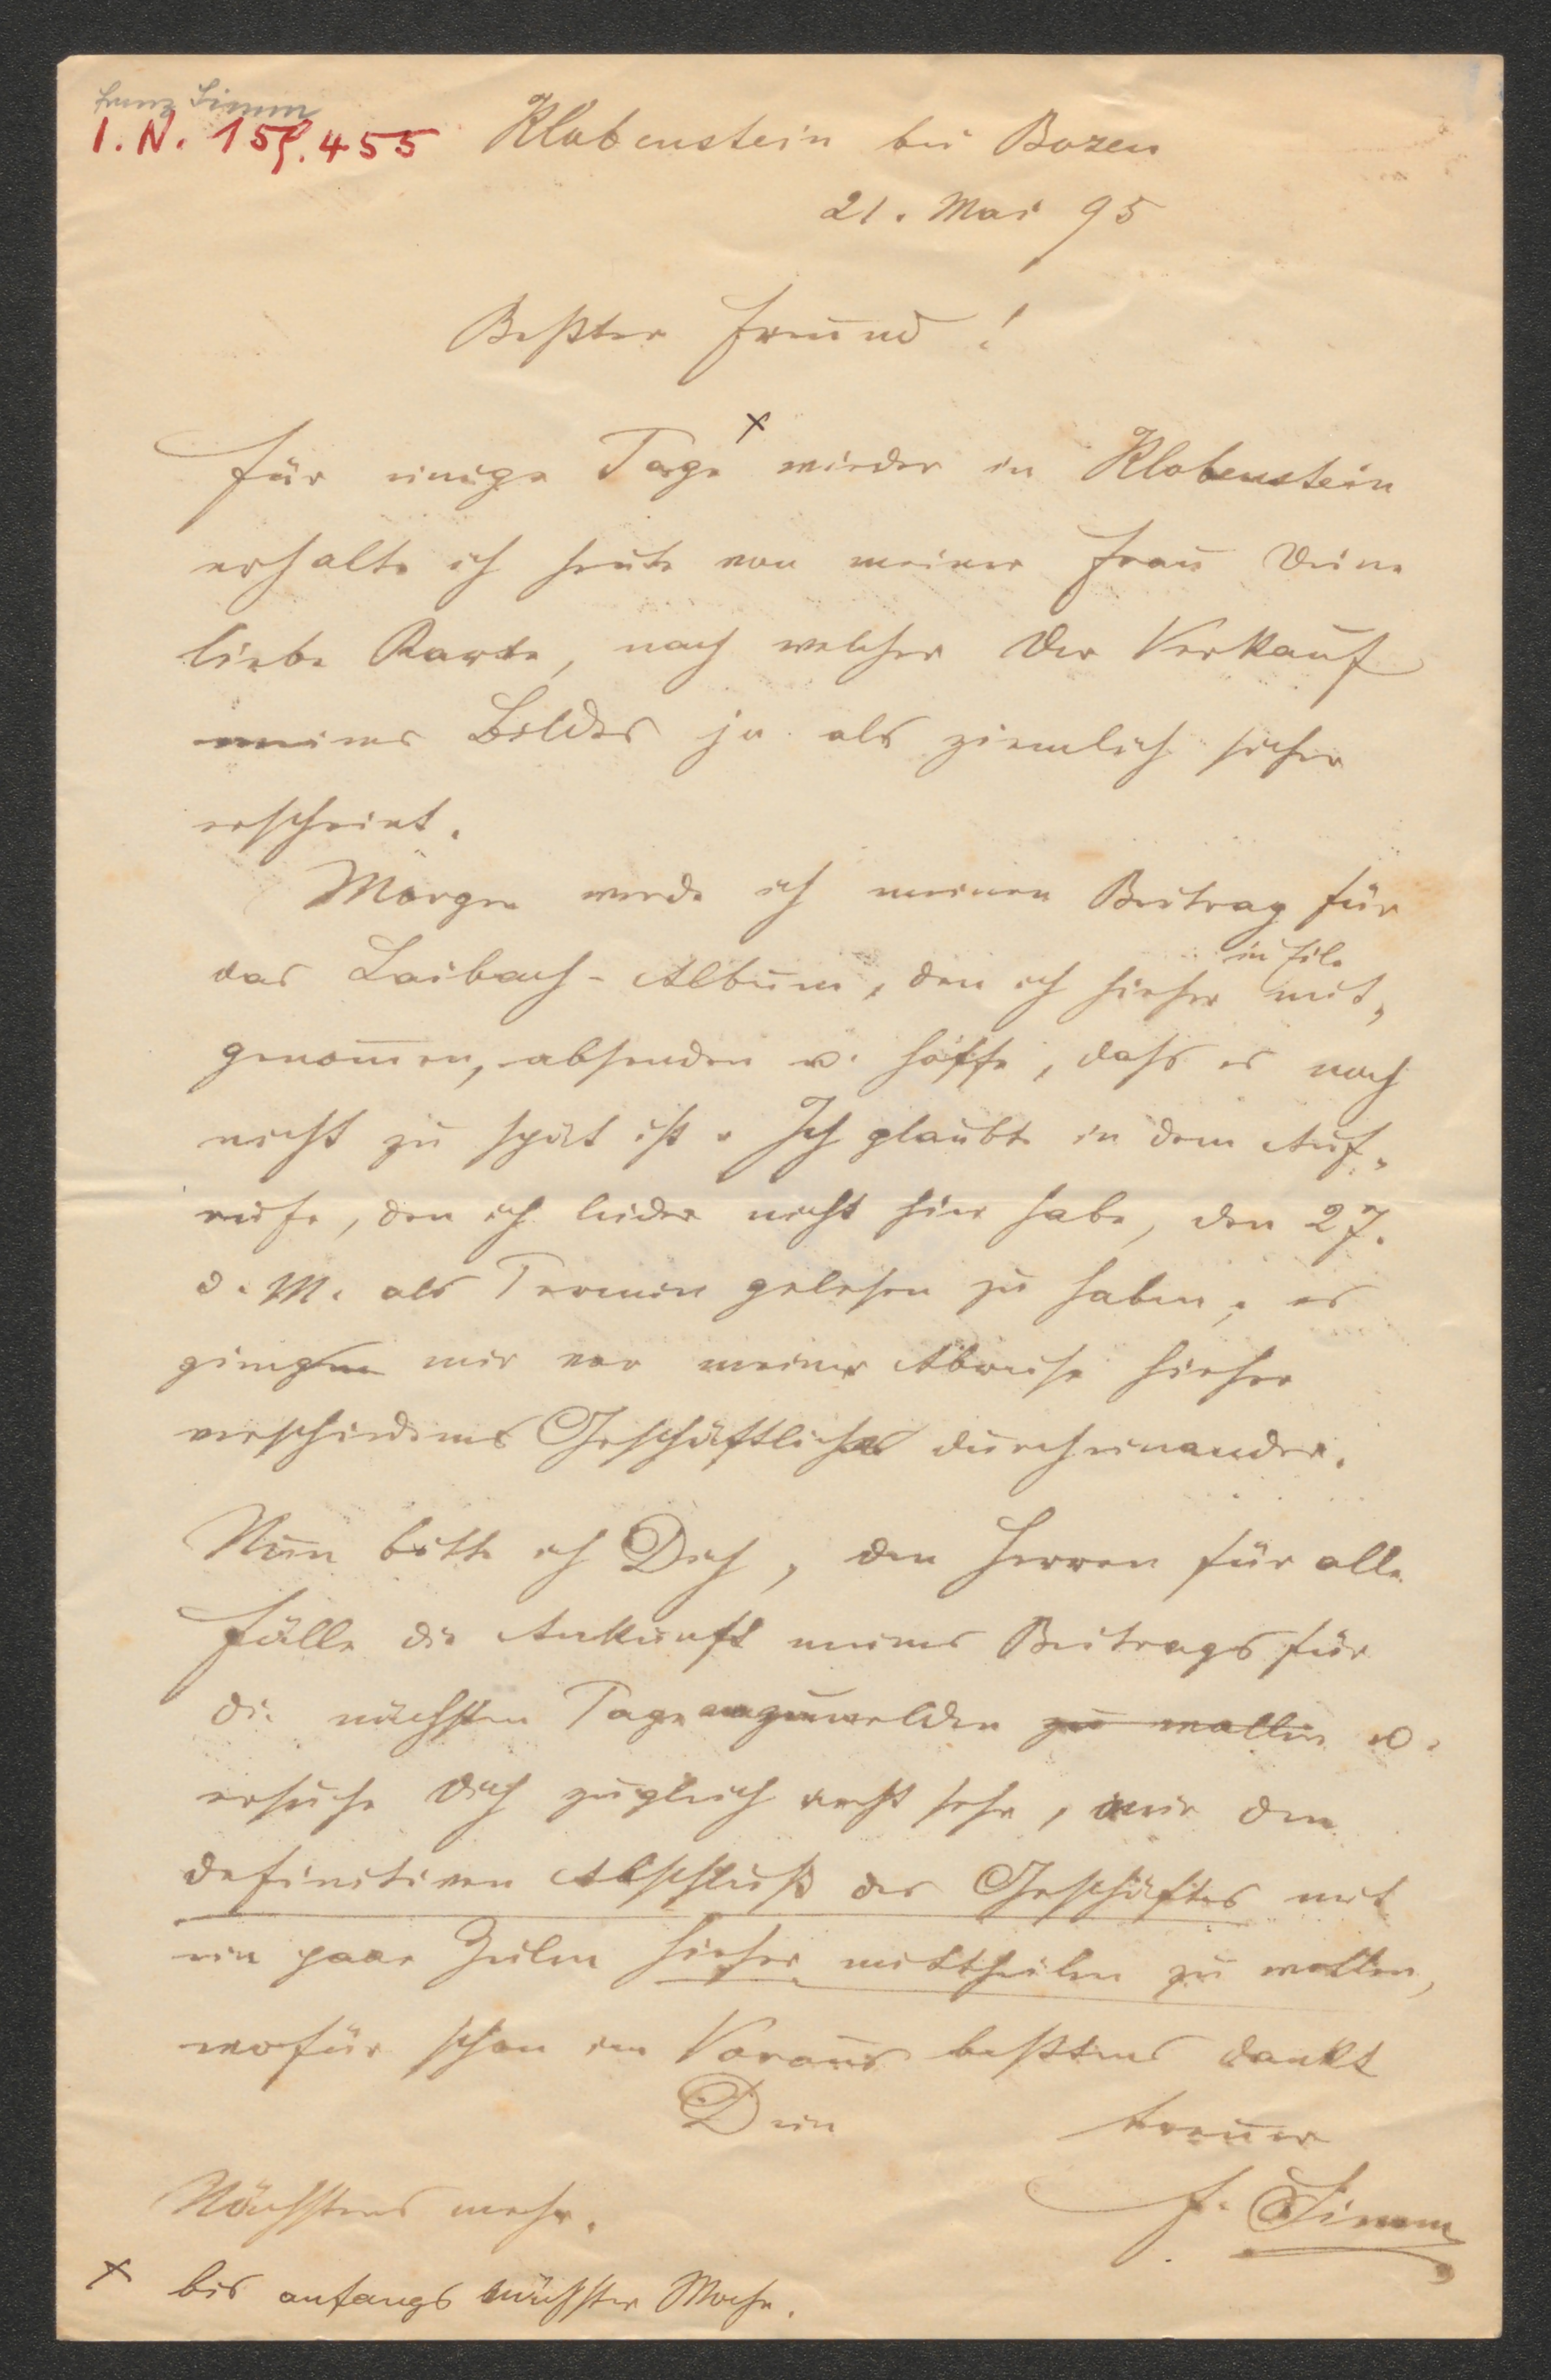 Franz Simm
I. N. 159.455
Klobenstein bei Bozen
21. Mai 95
Beßter Freund!
Für einige Tage x wieder in Klobenstein
erhalte ich heute von meiner Frau Deine
liebe Karte, nach welcher der Verkauf
meines Bildes ja als ziemlich sicher
erscheint.
Morgen werde ich meinen Beitrag für
das Laibach-Album, den ich hieher in Eile mit,
genommen, absenden u. hoffe, dass es noch
nicht zu spät ist. Ich glaubte in dem Auf-
rufe, den ich leider nicht hier habe, den 27.
d. M. als Termin gelesen zu haben; es
gingen mir vor meiner Abreise hieher
verschiedenes Geschäftliches durcheinander.
Nun bitte ich Dich, den Herren für alle
Fälle die Ankunft meines Beitrags für
die nächsten Tage anzumelden zu wollen u.
ersuche Dich zugleich recht sehr, mir den
definitiven Abschluß des Geschäftes mit
ein paar Zeilen hieher mittheilen zu wollen,
wofür schon im Voraus beßtens dankt
Dein treuer
Nächstens mehr. F. Simm
x bis anfangs nächster Woche.